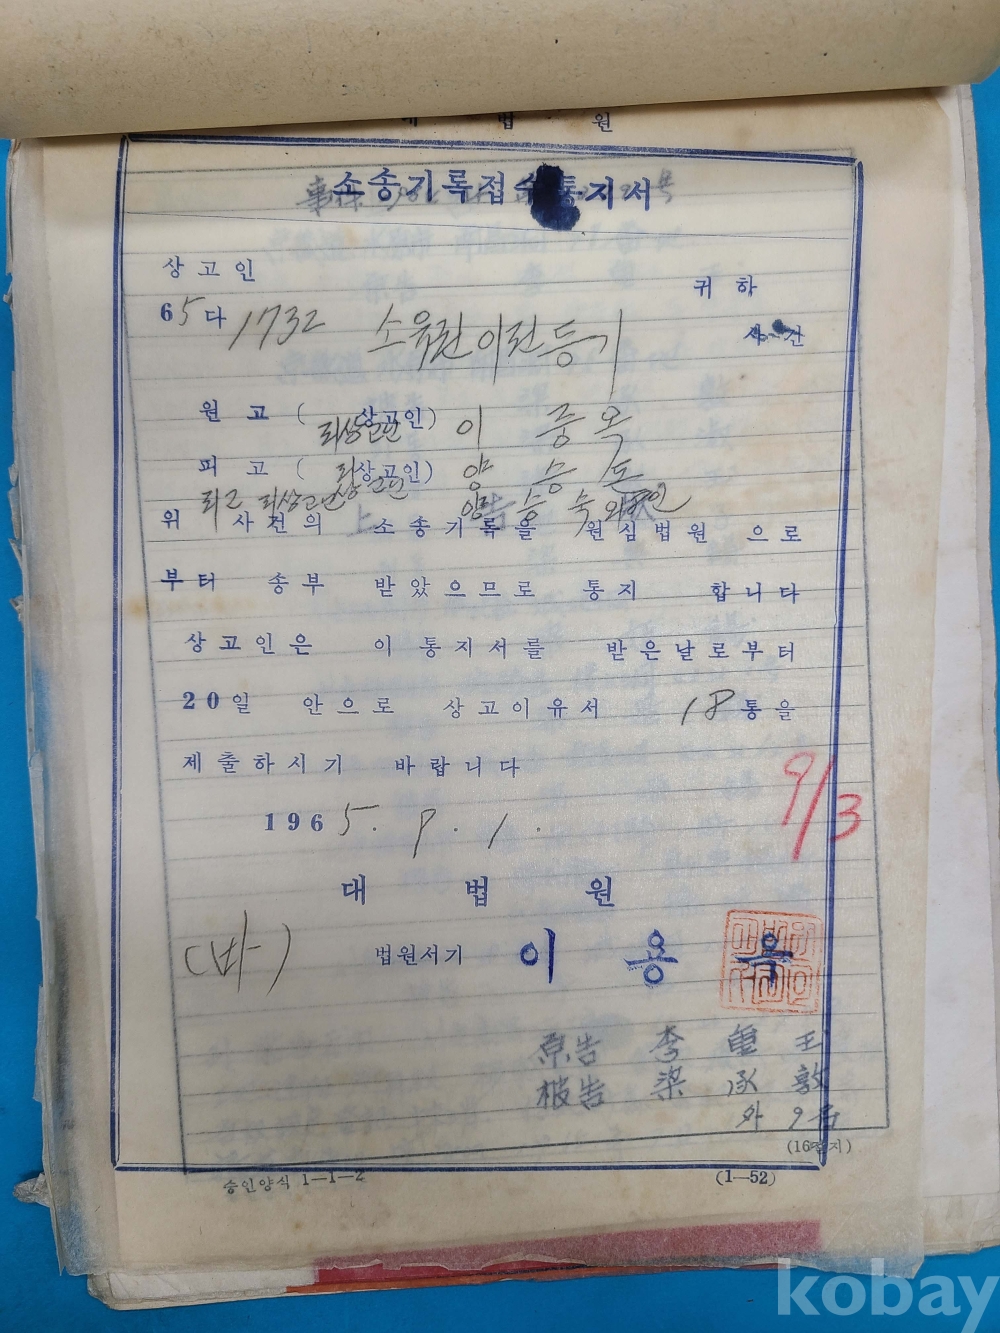 대 법 원
소송기록접수통지서
상고인 귀하
65다1732 소유권이전등기 사건
원고 ( 피상고인 상고인) 이 중 옥
피고 ( 피상고인 상고인) 양 승 돈
피고 피상고인 양 승 숙 외
위 사건의 소송기록을 원심법원 으로
부터 송부 받았으므로 통지 합니다
상고인은 이 통지서를 받은날로부터
20일 안으로 상고이유서 18통을
제출하시기 바랍니다
9/3
1965. 9. 1.
대 법 원
(바) 법원서기 이 용 옥
原告 李 重 玉
被告 梁 承 敦
外 9名
(16절지)
승인양식 1—1—2 (1—52)
kobay